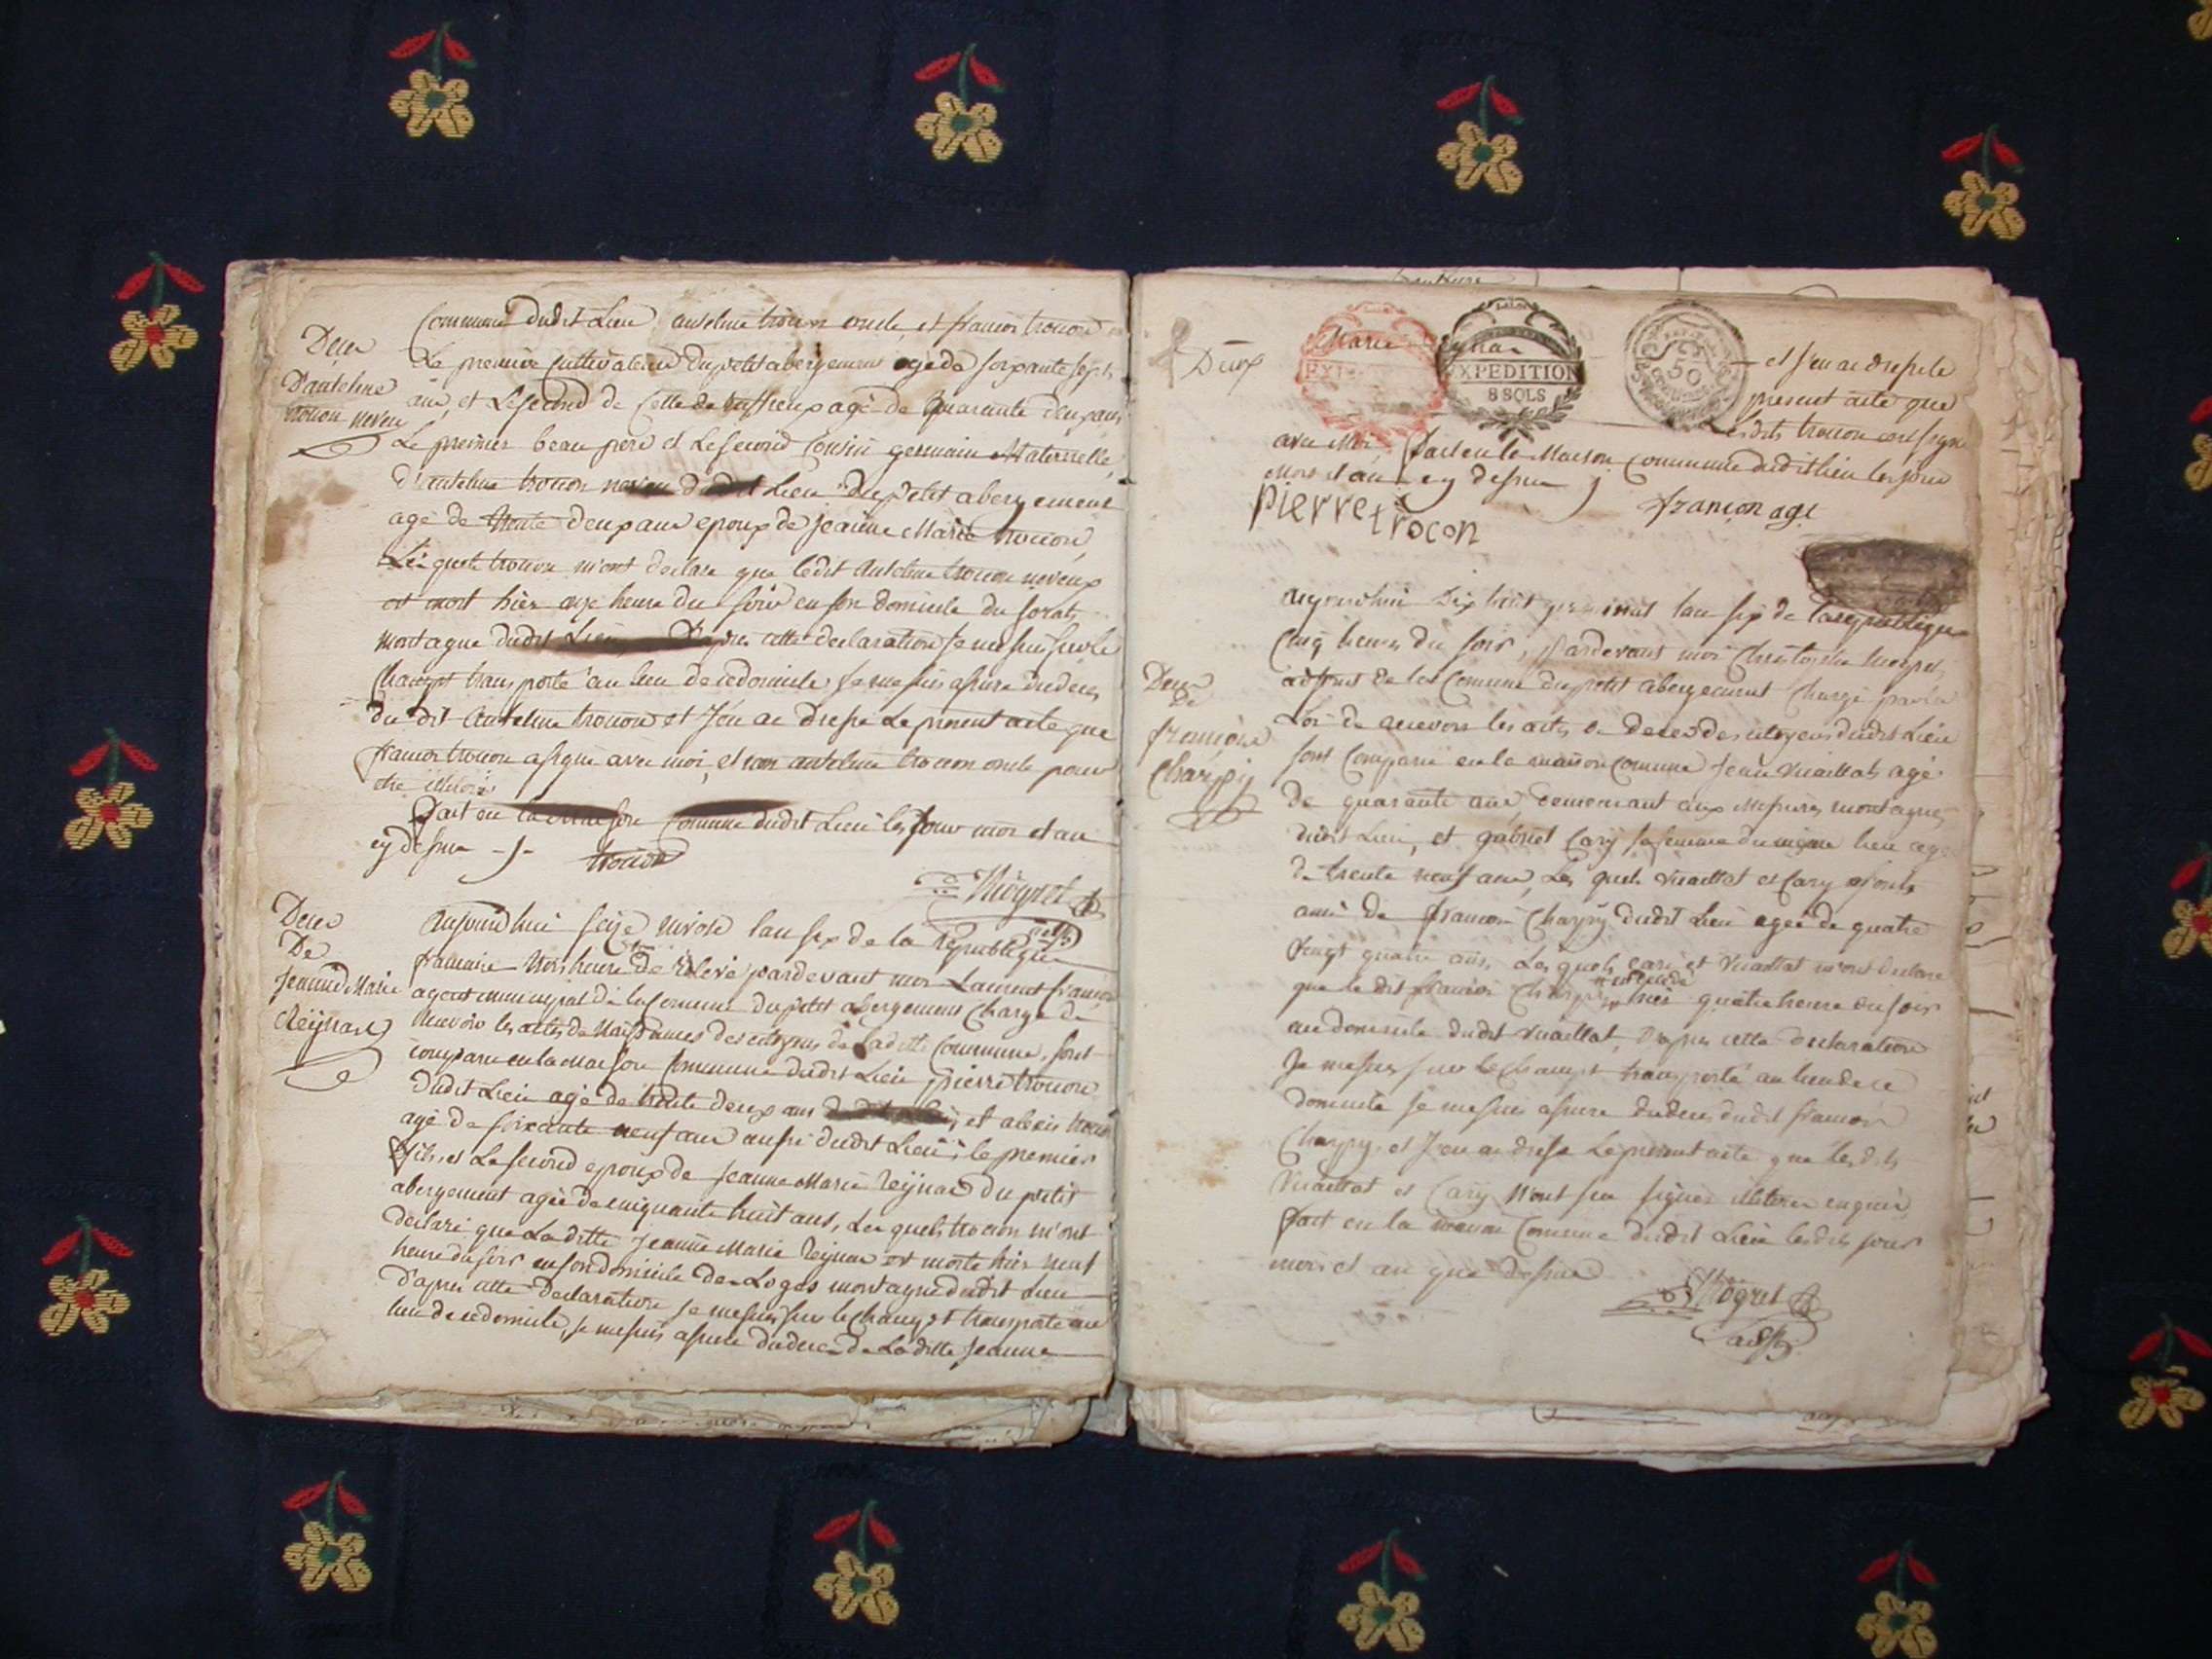 Commune dudit Lieu anselme trocon oncle, et francois trocon
Deces
Le premier Cultivateur du petit abergement agé de soixante sept
D'antelme
ans, et Le second de Celle de Ruffieux agé de quarante deux ans
trocon neveu
Le premier beau pere et Le second Cousin germain Maternelle
d'antelme trocon neveu dudit Lieu du petit abergement
agé de trente deux ans epoux de jeanne Marie trocon,
Lesquels trocon m'ont declare que ledit Antelme trocon neveux
est mort hier onze heure du soir en son domicile du sorat
montagne dudit Lieu D'apres cette declaration je me suis sur le
Champt transporté au lieu de ce domicile je me suis assure du deces
du dit Antelme trocon et J'en ai Dressé Le present acte que
francois trocon a signé avec moi, et non antelme trocon oncle pour
etre illitere
Fait en la Maison Commune dudit Lieu les jour mois et an
cy dessus -j- trocon
Mogret
adj
Deces
De
Jeanne Marie
Reynard
Aujourd'hui seize nivose l'an six de la Republique
francaise trois heure de relevé pardevant moi Laurent francois
agent municipal de la Commune du petit abergement Chargé de
recevoir les actes de Naissances des citoyens de Ladite Commune, sont
comparu en la maison Commune dudit Lieu pierre trocon
dudit Lieu agé de trente deux ans et alexis trocon
agé de soixante neuf ans aussi dudit Lieu; le premier
fils, et Le second epoux de jeanne Marie Reynard du petit
abergement agée de cinquante huit ans, Lesquels trocon m'ont
declaré que Laditte jeanne Marie Reynard est morte hier neuf
heure du soir en son domicile des Loges montagne dudit Lieu
D'apres cette Declaration je me suis sur le Champt transporté au
lieu de ce domicile, je me suis assure du deces de Laditte jeanne
Deux
Marie
EXPEDITION
8 SOLS
50
et j'en ai dressé le
present acte que
Lesdits trocon ont signé
avec Moi fait en la Maison Commune dudit lieu les jour
Mois et an cy dessus j
pierre trocon
françon agt
aujourd'hui Dix huit germinal l'an six de la republique
Cinq heures du soir, pardevant moi Christophe Mogret,
adjoint de la Commune du petit abergement Chargé par la
Deces
De
françois
Charpy
Loi de recevoir les actes de deces des citoyens dudit Lieu
sont Comparu en la maison Comune jean Vuaillat agé
de quarante ans, demeurant aux Mesures montagne,
dudit Lieu, et gabriel Cary sa femme du meme lieu agé
de trente neuf ans, Les quels Vuaillat et Cary
amis de francois Charpy dudit Lieu agée de quatre
vingt quatre ans, Les quels cary et Vuaillat m'ont declare
que le dit francois Charpy est decedé hier quatre heure du soir
au domicile dudit Vuaillat, D'apres cette declaration
Je me suis sur le Champt transporté au lieu de ce
domicile je me suis assure du deces dudit francois
Charpy, et J'en ai dressé Le present acte que lesdits
Vuaillat et Cary N'ont su signer illiteré enquis,
fait en la maison Comune dudit Lieu lesdits jour
mois et an que dessus
Mogret
adj